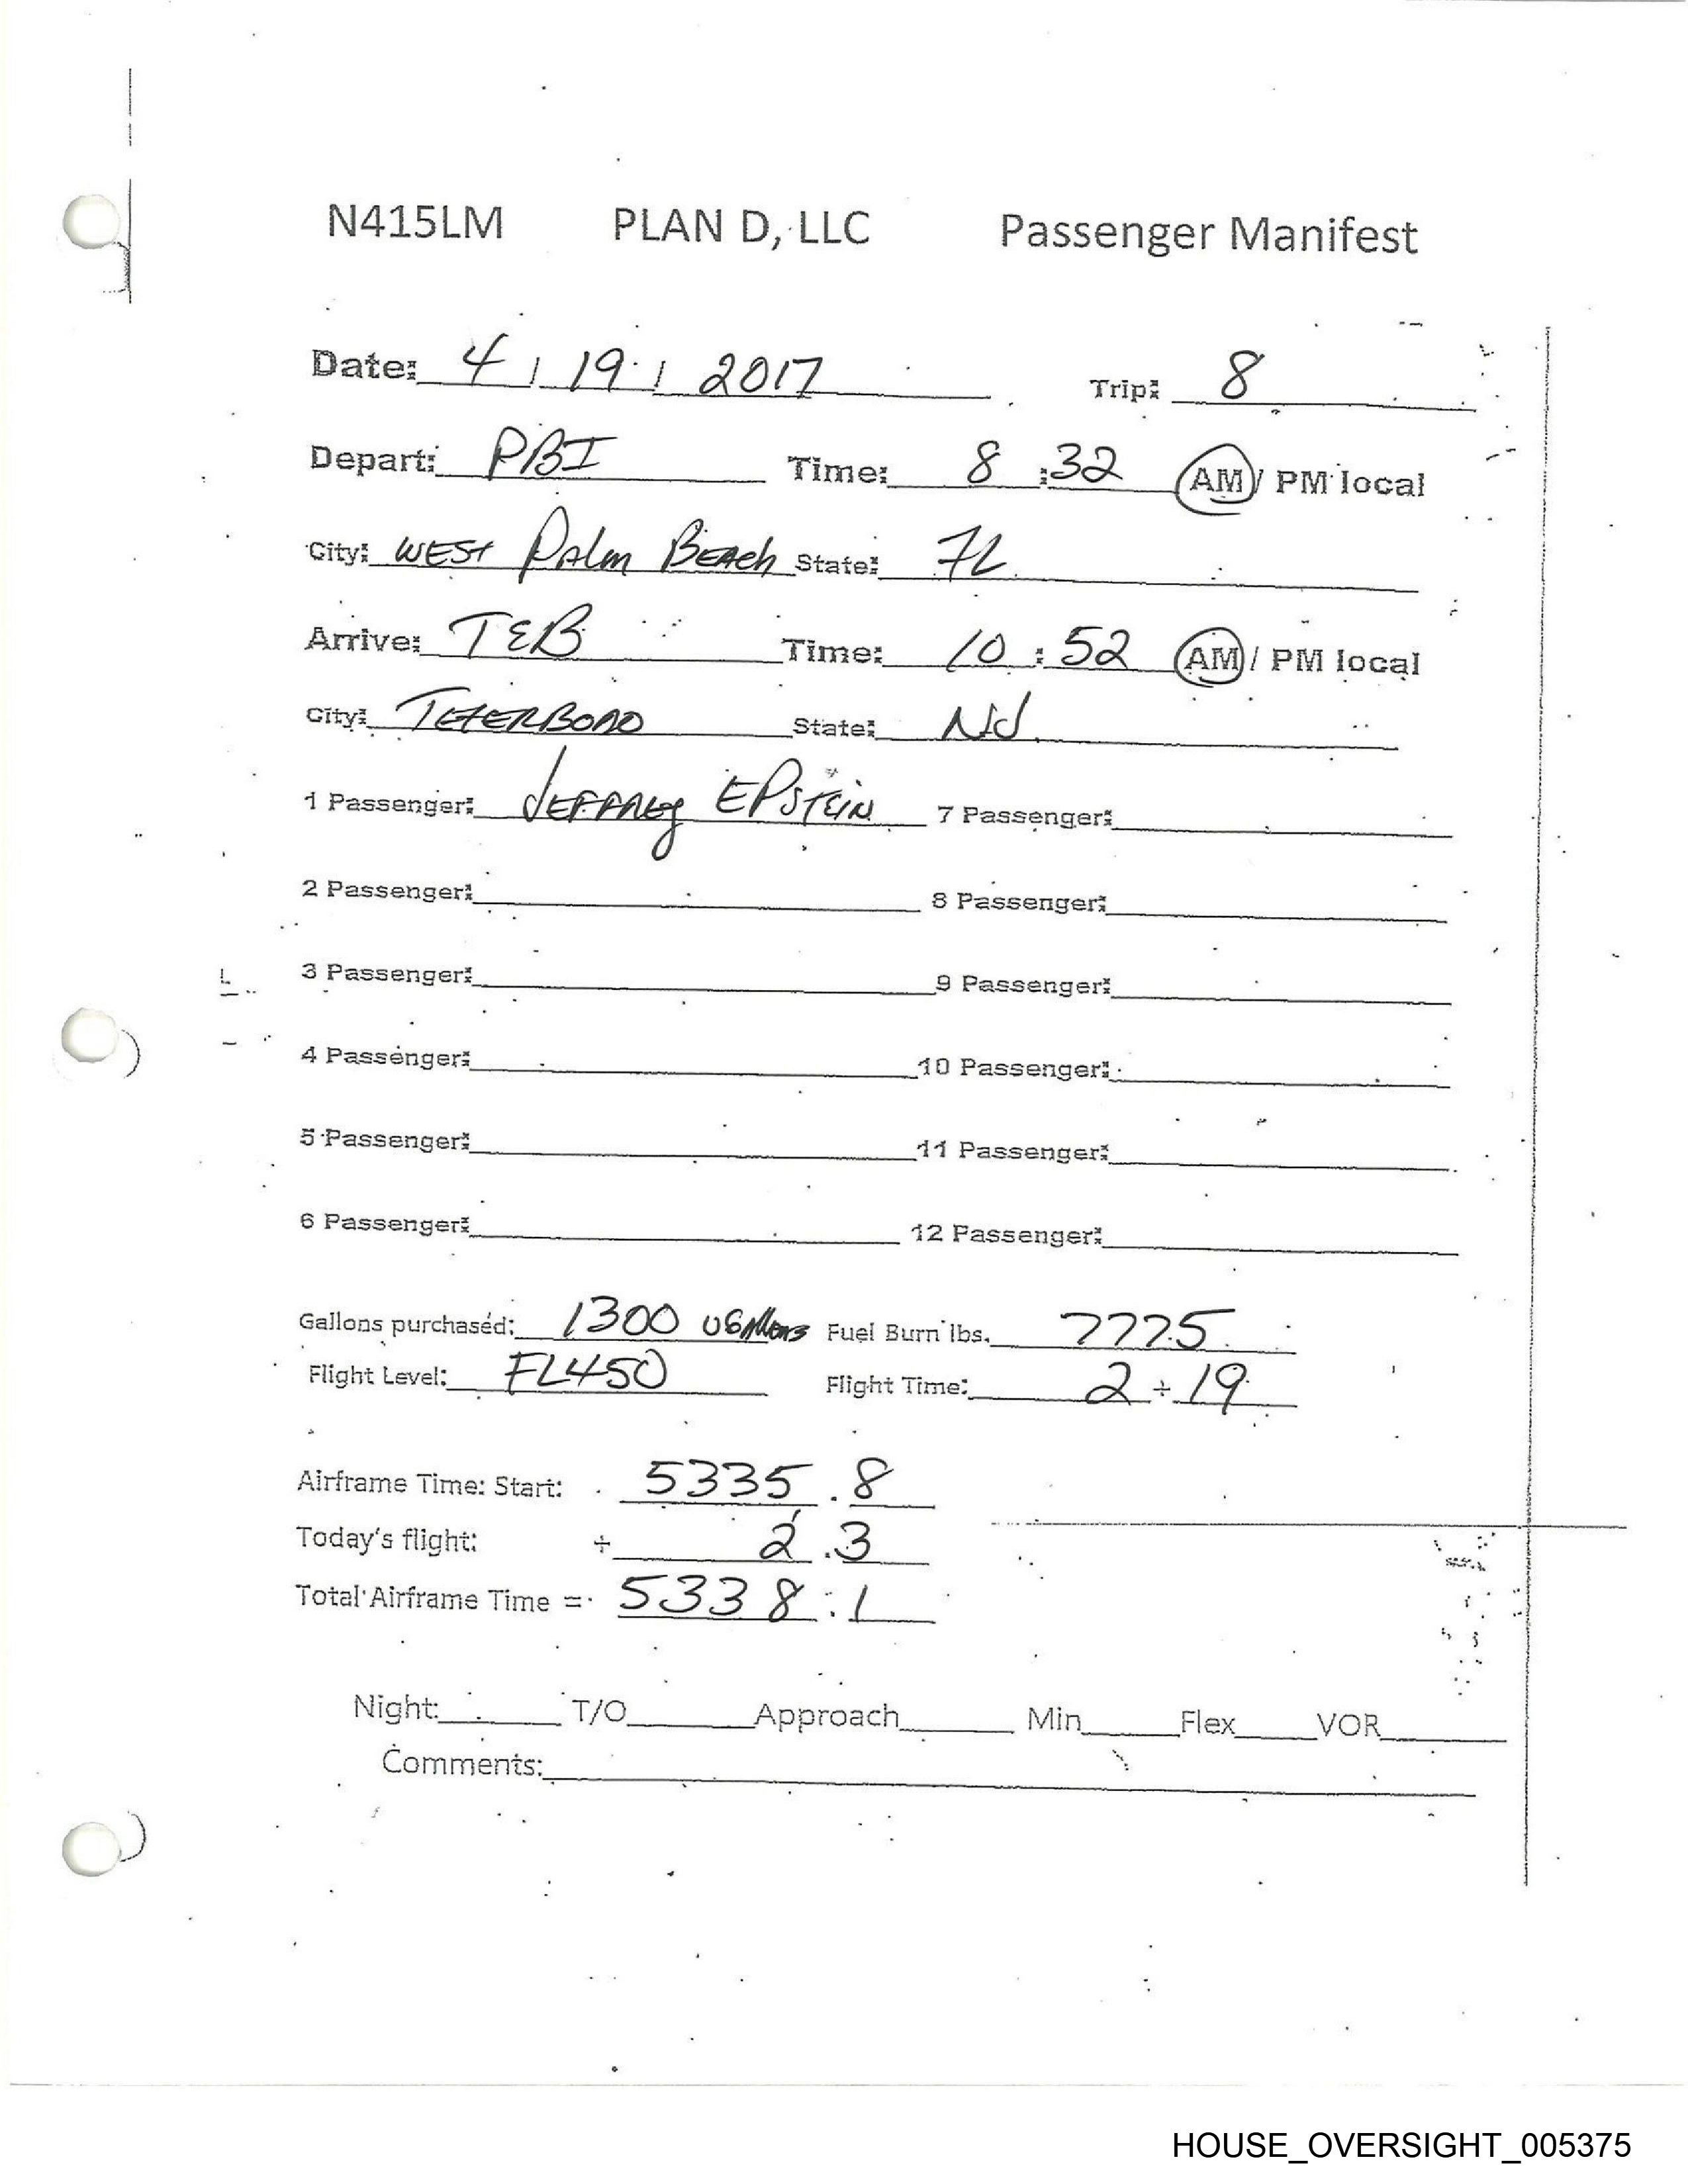 N415LM PLAN D, LLC Passenger Manifest
Date: 4 / 19 / 2017 Trip: 8
Depart: PBI Time: 8 :32 AM / PM local
City: WEST PAlm BEACh State: FL
Arrive: TEB Time: 10 : 52 AM / PM local
City: TETERBORO State: NJ
1 Passenger: JEFFREy EPSTEiN 7 Passenger:
2 Passenger: 8 Passenger:
3 Passenger: 9 Passenger:
4 Passenger: 10 Passenger:
5 Passenger: 11 Passenger:
6 Passenger: 12 Passenger:
Gallons purchased: 1300 USGAllons Fuel Burn lbs. 7775
Flight Level: FL450 Flight Time: 2 + 19
Airframe Time: Start: 5335 .8
Today's flight: + 2 .3
Total Airframe Time = 5338 .1
Night: T/O Approach Min Flex VOR
Comments:
HOUSE_OVERSIGHT_005375